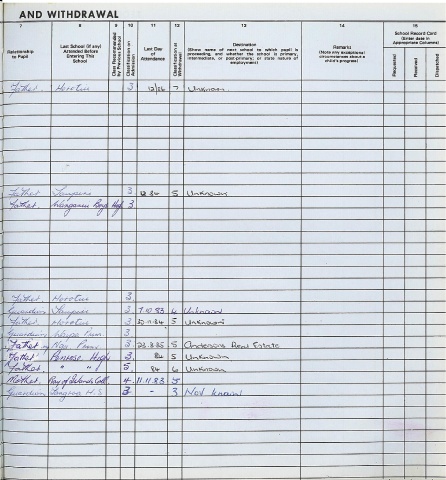 AND WITHDRAWAL
7 8 9 10 11 12 13 14 15
Relationship to Pupil
Last School (if any) Attended Before Entering This School
Class Recommended by Previous School
Classification on Admission
Last Day of Attendance
Classification at Withdrawal
Destination
(Show name of next school to which pupil is proceeding, and whether the school is primary, intermediate, or post-primary; or state nature of employment)
Remarks
(Note any exceptional circumstances about a child's progress)
School Record Card
(Enter date in Appropriate Columns)
Requested
Received
Despatched
Father. Horotiu 3 7 Unknown
Father 3 84 5 Unknown
Father. Wanganui Boys High 3
Father. Horotiu 3
Guardian 3 7.10.83 Unknown
Father Horotiu 3 84 5 Unknown
Guardian Prim. 3
Father Prim. 3 23.8.85 5 Andersons Real Estate
Father Penrose High 3. 84 5 Unknown
Father. " " 5. 84 6 Unknown
Mother. Bay of Islands Coll. 4. 11.11.83 5
Guardian H.S 3 - 3 Not known